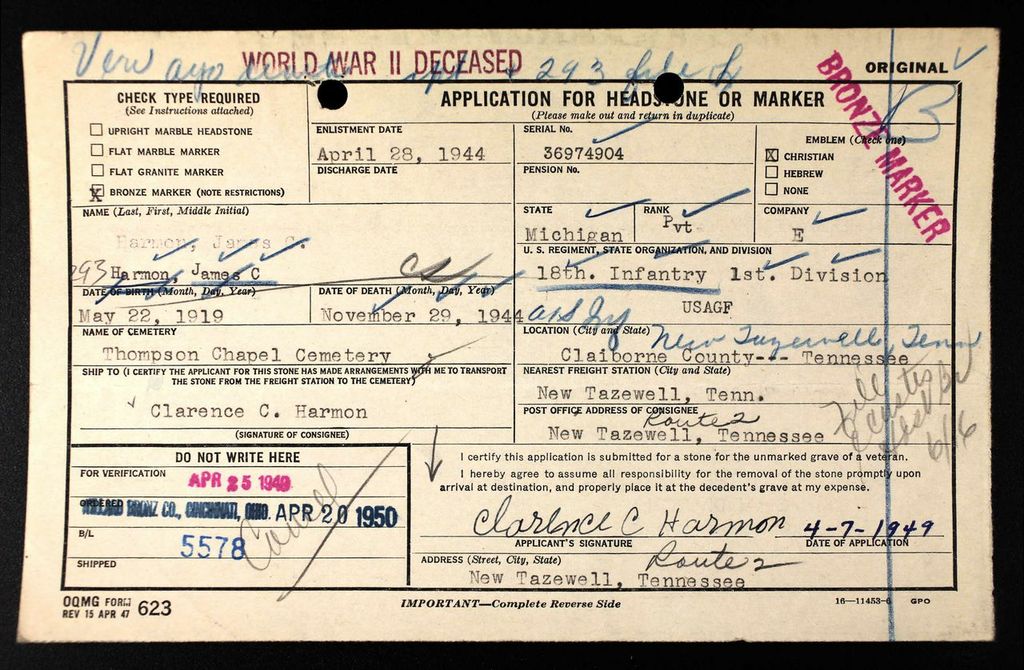 WORLD WAR II DECEASED
293 file
ORIGINAL
BRONZE MARKER
B
CHECK TYPE REQUIRED
(See Instructions attached)
UPRIGHT MARBLE HEADSTONE
FLAT MARBLE MARKER
FLAT GRANITE MARKER
X BRONZE MARKER (NOTE RESTRICTIONS)
APPLICATION FOR HEADSTONE OR MARKER
(Please make out and return in duplicate)
ENLISTMENT DATE
April 28, 1944
DISCHARGE DATE
SERIAL No.
36974904
PENSION No.
EMBLEM (Check one)
X CHRISTIAN
HEBREW
NONE
NAME (Last, First, Middle Initial)
Harmon, James C.
293 Harmon, James C
STATE
Michigan
RANK
Pvt
COMPANY
E
U. S. REGIMENT, STATE ORGANIZATION, AND DIVISION
18th. Infantry 1st. Division
USAGF
DATE OF BIRTH (Month, Day, Year)
May 22, 1919
DATE OF DEATH (Month, Day, Year)
November 29, 1944
NAME OF CEMETERY
Thompson Chapel Cemetery
LOCATION (City and State)
New Tazewell, Tenn
Claiborne County--- Tennessee
SHIP TO (I CERTIFY THE APPLICANT FOR THIS STONE HAS MADE ARRANGEMENTS WITH ME TO TRANSPORT
THE STONE FROM THE FREIGHT STATION TO THE CEMETERY)
Clarence C. Harmon
(SIGNATURE OF CONSIGNEE)
NEAREST FREIGHT STATION (City and State)
New Tazewell, Tenn.
POST OFFICE ADDRESS OF CONSIGNEE
Route 2
New Tazewell, Tennessee
DO NOT WRITE HERE
FOR VERIFICATION
APR 25 1949
ORDERED
BRONZ CO., CINCINNATI, OHIO. APR 20 1950
B/L
5578
SHIPPED
Cancel
I certify this application is submitted for a stone for the unmarked grave of a veteran.
I hereby agree to assume all responsibility for the removal of the stone promptly upon
arrival at destination, and properly place it at the decedent's grave at my expense.
Clarence C Harmon 4-7-1949
APPLICANT'S SIGNATURE
DATE OF APPLICATION
ADDRESS (Street, City, State)
Route 2
New Tazewell, Tennessee
OQMG FORM
REV 15 APR 47 623
IMPORTANT—Complete Reverse Side
16—11453-6 GPO